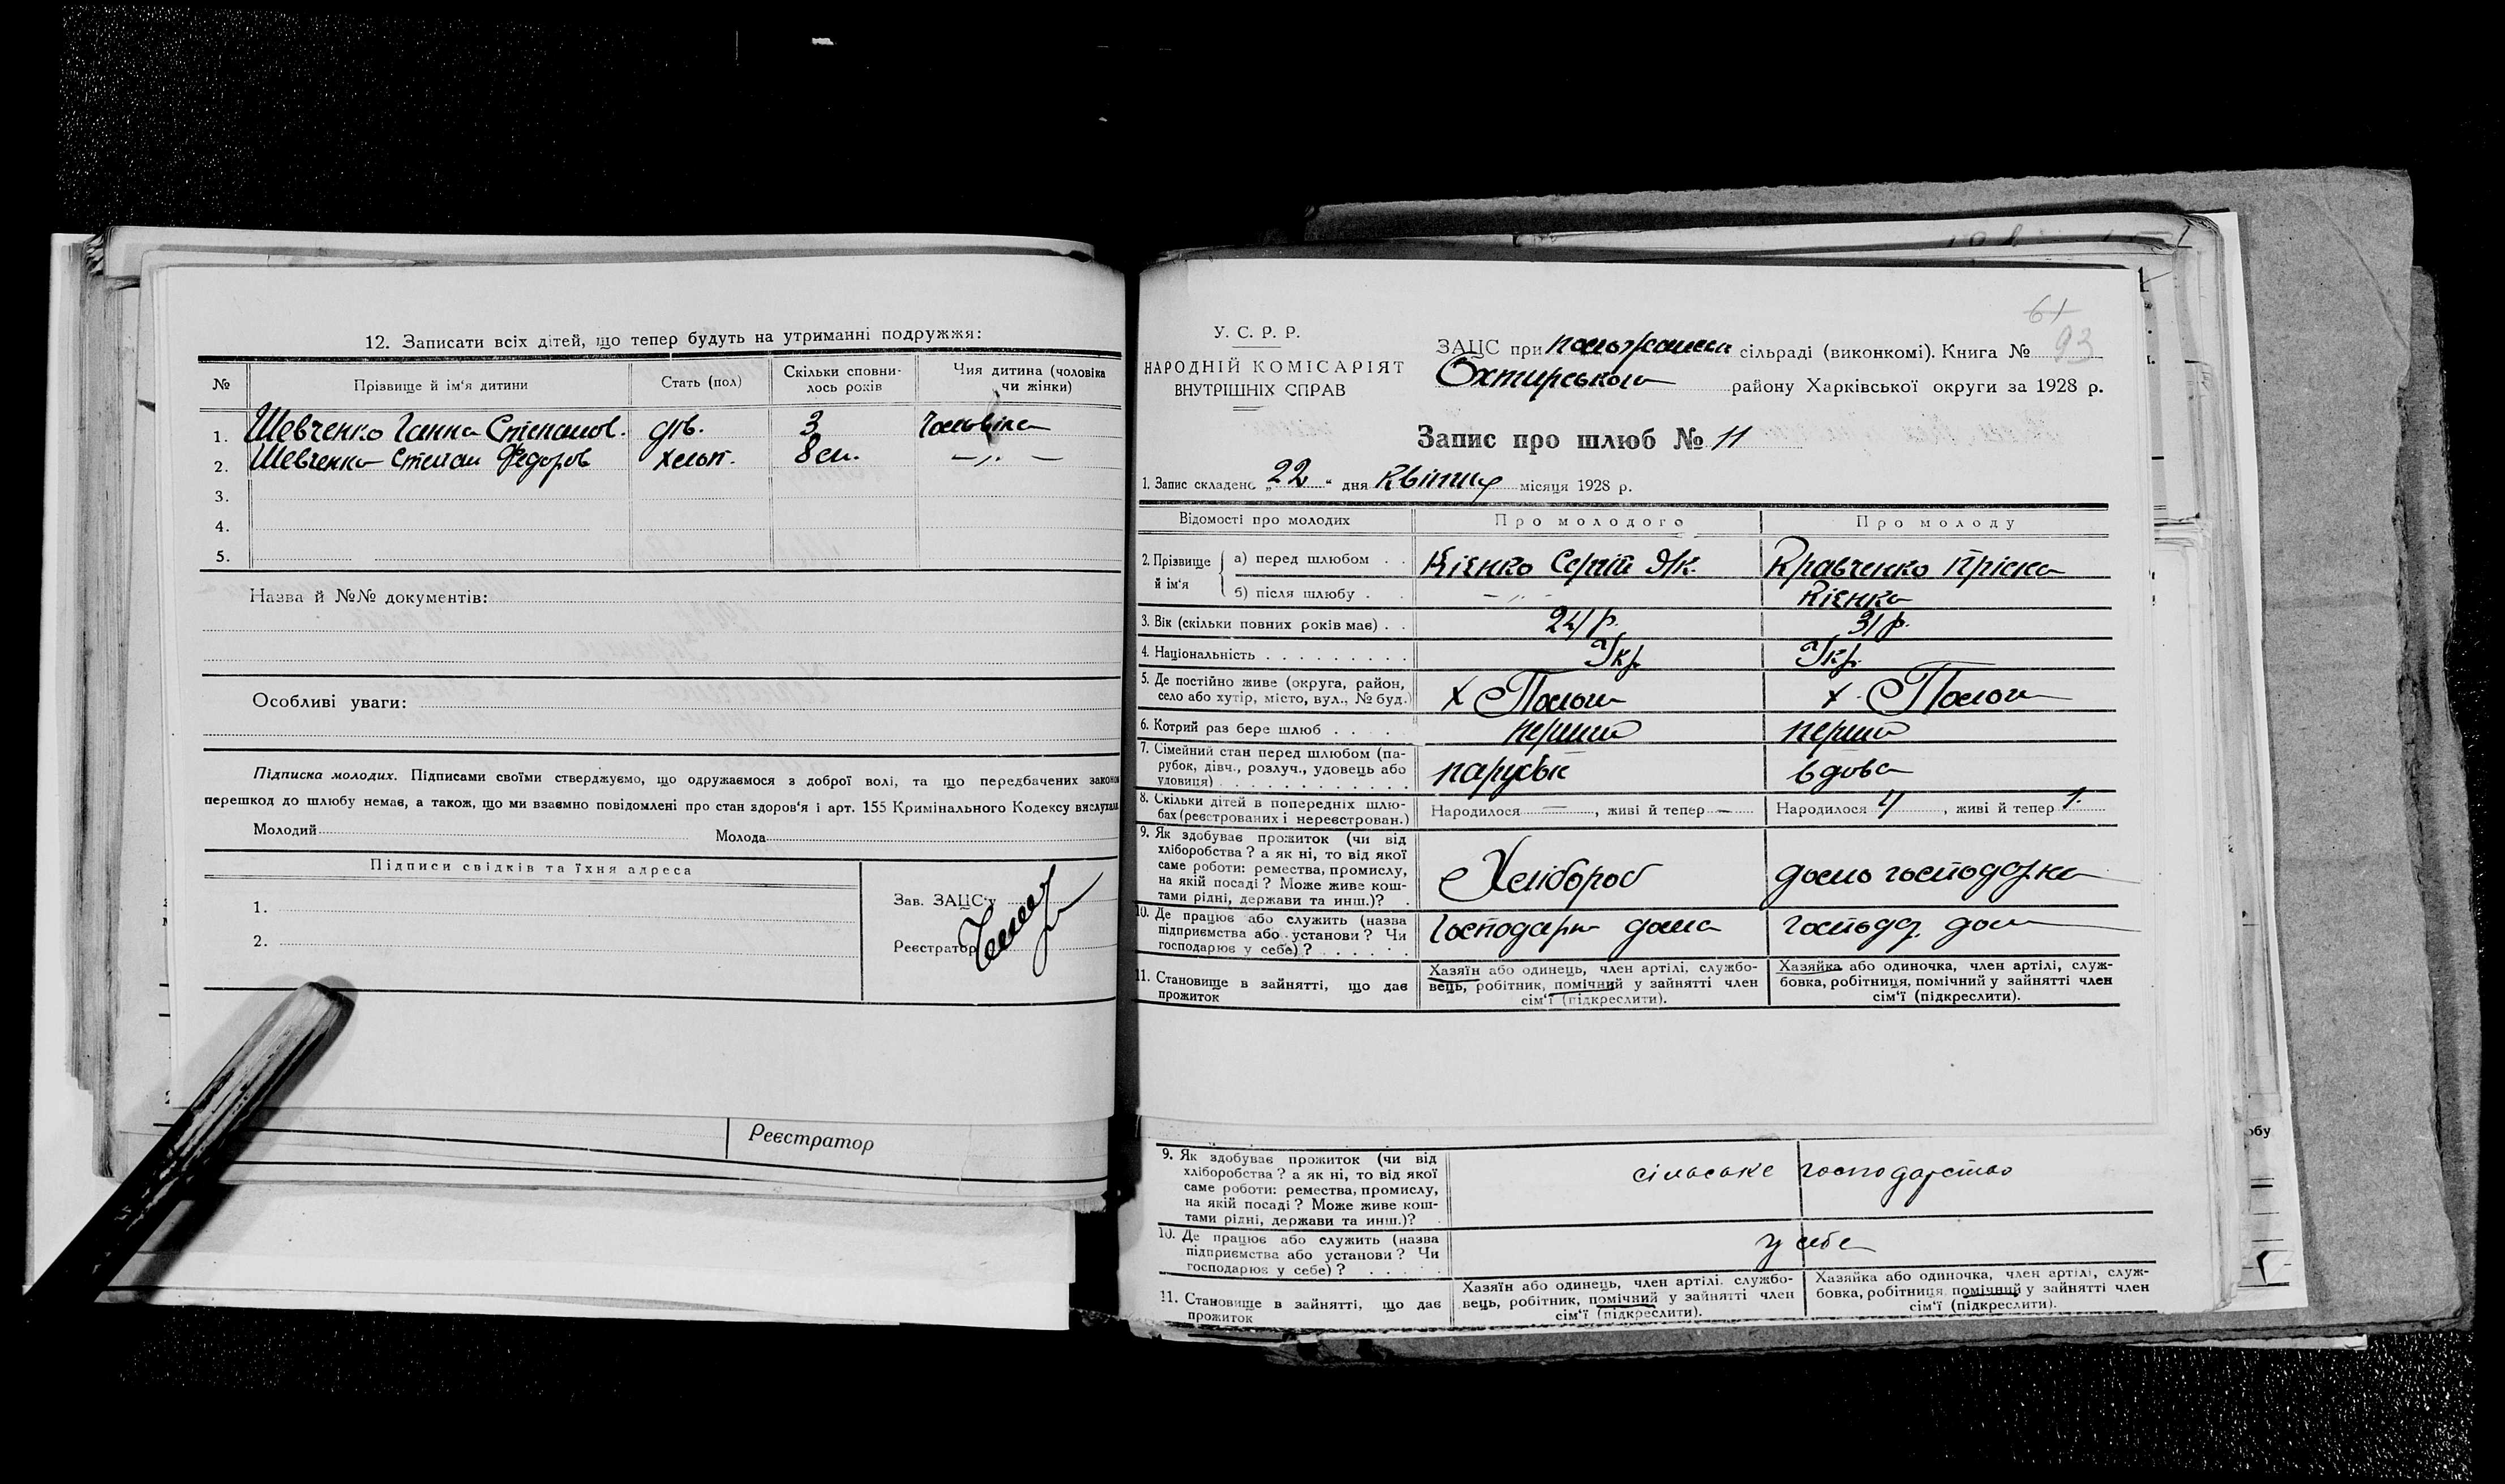 12. Записати всіх дітей, що тепер будуть на утриманні подружжя:
№ Прізвище й ім'я дитини Стать (пол) Скільки сповни-лось років Чия дитина (чоловіка чи жінки)
1. Шевченко Ганна Степанов. дів. 3 Чоловіка
2. Шевченко Степан Федоров хлоп. 8 м. — „ —
3.
4.
5.
Назва й №№ документів:
Особливі уваги:
Підписка молодих. Підписами своїми стверджуємо, що одружаємося з доброї волі, та що передбачених законом
перешкод до шлюбу немає, а також, що ми взаємно повідомлені про стан здоров'я і арт. 155 Кримінального Кодексу вислухали
Молодий Молода
Підписи свідків та їхня адреса
1.
2.
Зав. ЗАЦС'у
Реєстратор
Реєстратор
61
93
У. С. Р. Р.
НАРОДНІЙ КОМІСАРІЯТ
ВНУТРІШНІХ СПРАВ
ЗАЦС при сільраді (виконкомі). Книга №
Охтирського району Харківської округи за 1928 р.
Запис про шлюб № 11
1. Запис складено „22" дня Квітня місяця 1928 р.
Відомості про молодих Про молодого Про молоду
2. Прізвище й ім'я
а) перед шлюбом . . Кієнко Сергій Як. Кравченко Пріска
б) після шлюбу . . — „ — Кієнко
3. Вік (скільки повних років має) . . 24 р. 31 р.
4. Національність . . . . . . . . . Укр. Укр.
5. Де постійно живе (округа, район,
село або хутір, місто, вул., № буд.)
х х.
6. Котрий раз бере шлюб . . . . . перший перший
7. Сімейний стан перед шлюбом (па-
рубок, дівч., розлуч., удовець або
удовиця) . . . . . . . . . . . .
парубок вдова
8. Скільки дітей в попередніх шлю-
бах (реєстрованих і нереєстрован.)
Народилося —, живі й тепер — Народилося , живі й тепер 1.
9. Як здобуває прожиток (чи від
хліборобства? а як ні, то від якої
саме роботи: ремества, промислу,
на якій посаді? Може живе кош-
тами рідні, держави та инш.)? .
Хлібороб домогосподарка
10. Де працює або служить (назва
підприємства або установи? Чи
господарює у себе)? . . . . . .
Господарює дома господар. дома
11. Становище в зайнятті, що дає
прожиток
Хазяїн або одинець, член артілі, службо-
вець, робітник, помічний у зайнятті член
сім'ї (підкреслити).
Хазяйка або одиночка, член артілі, служ-
бовка, робітниця, помічний у зайнятті член
сім'ї (підкреслити).
9. Як здобуває прожиток (чи від
хліборобства? а як ні, то від якої
саме роботи: ремества, промислу,
на якій посаді? Може живе кош-
тами рідні, держави та инш.)?
сільське господарство
10. Де працює або служить (назва
підприємства або установи? Чи
господарює у себе)? . . . . .
у себе
11. Становище в зайнятті, що дає
прожиток
Хазяїн або одинець, член артілі, службо-
вець, робітник, помічний у зайнятті член
сім'ї (підкреслити).
Хазяйка або одиночка, член артілі, служ-
бовка, робітниця, помічний у зайнятті член
сім'ї (підкреслити).